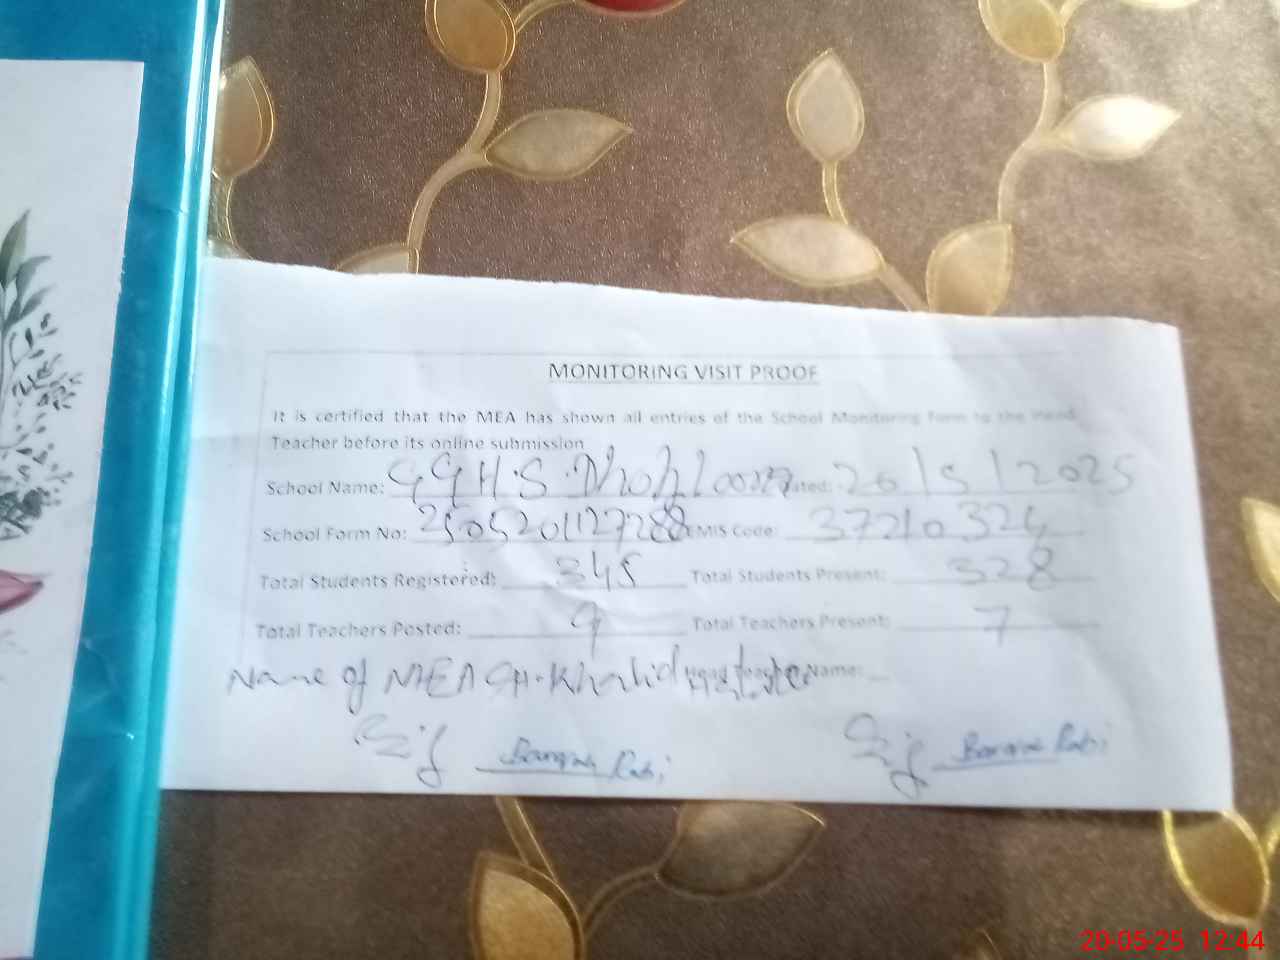 MONITORING VISIT PROOF
It is certified that the MEA has shown all entries of the School Monitoring Form to the Head
Teacher before its online submission
School Name: GGHS Dated: 20/5/2025
School Form No: 2505201127288 EMIS Code: 37210324
Total Students Registered: 345 Total Students Present: 328
Total Teachers Posted: 9 Total Teachers Present: 7
Name of MEA CH. Khalid Head Teacher Name:
20-05-25 12:44